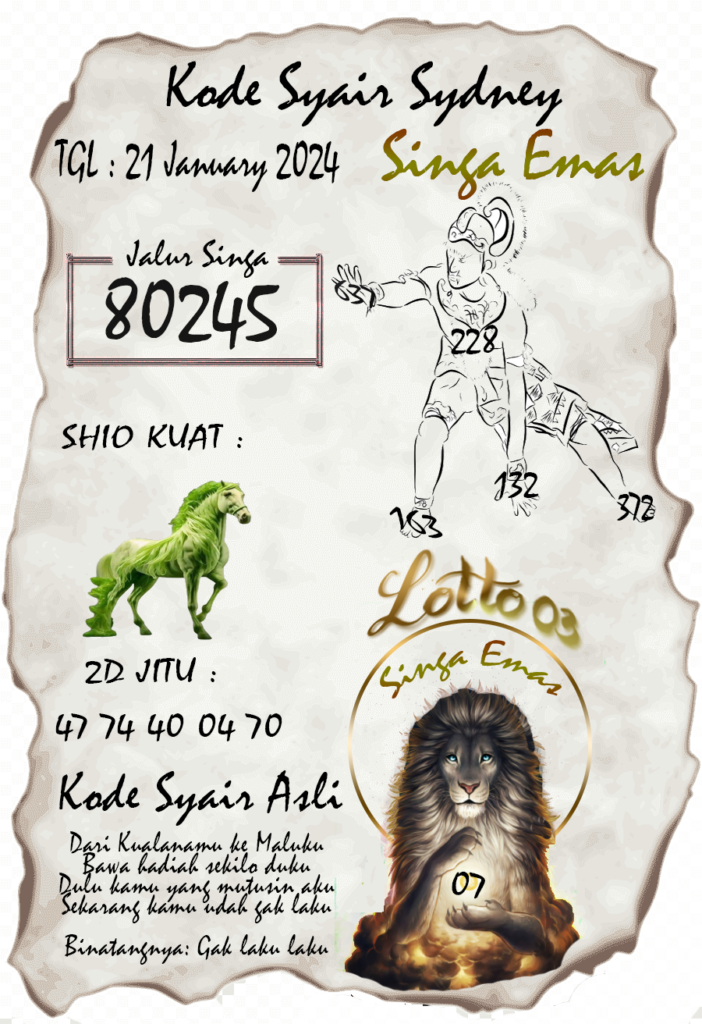 Kode Syair Sydney
TGL : 21 January 2024
Singa Emas
Jalur Singa
80245
037
228
132
163
372
SHIO KUAT :
Lotto 03
Singa Emas
2D JITU :
47 74 40 04 70
Kode Syair Asli
Dari Kualanamu ke Maluku
Bawa hadiah sekilo duku
Dulu kamu yang mutusin aku
Sekarang kamu udah gak laku
Binatangnya: Gak laku laku
07